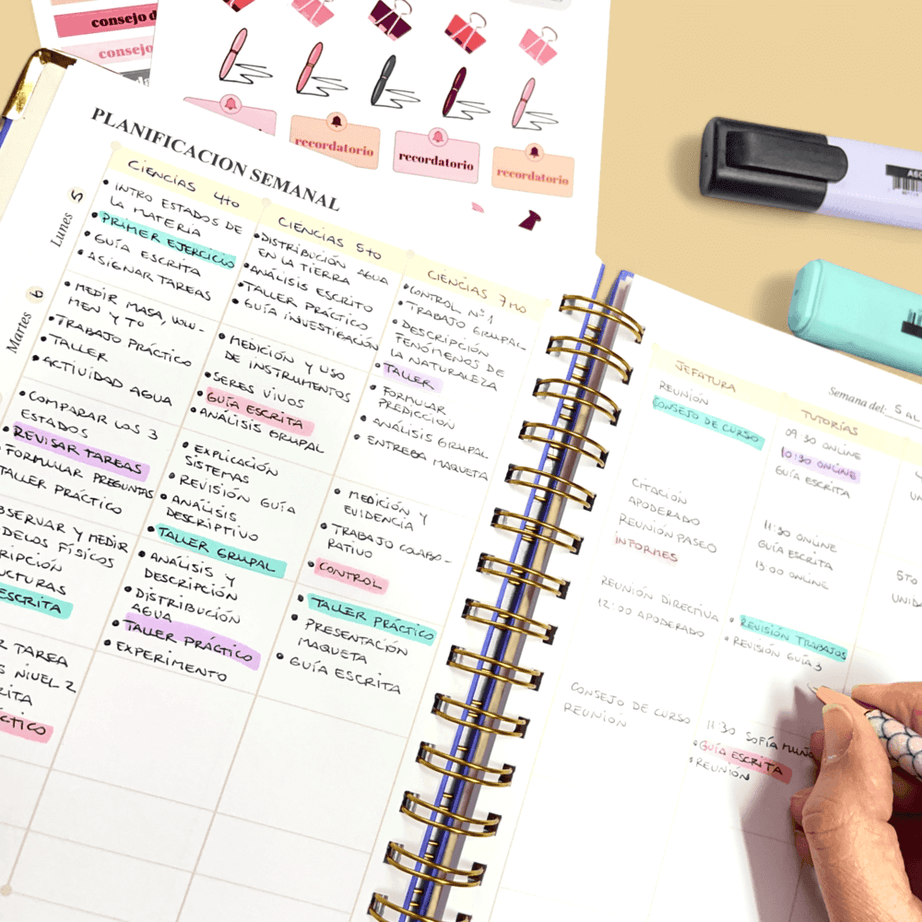 consejo d
consejo
recordatorio
recordatorio
recordatorio
PLANIFICACION SEMANAL
Lunes 5
CIENCIAS 4to
• INTRO ESTADOS DE
LA MATERIA
• PRIMER EJERCICIO
• GUÍA ESCRITA
• ASIGNAR TAREAS
CIENCIAS 5to
• DISTRIBUCIÓN AGUA
EN LA TIERRA
• ANÁLISIS ESCRITO
• TALLER PRÁCTICO
• GUÍA INVESTIGACIÓN
CIENCIAS 7mo
• CONTROL Nº1
• TRABAJO GRUPAL
• DESCRIPCIÓN
FENÓMENOS DE
LA NATURALEZA
• TALLER
Martes 6
• MEDIR MASA, VOLU-
MEN Y Tº
• TRABAJO PRÁCTICO
• TALLER
• ACTIVIDAD AGUA
• MEDICIÓN Y USO
DE INSTRUMENTOS
• SERES VIVOS
• GUÍA ESCRITA
• ANÁLISIS GRUPAL
• FORMULAR
PREDICCIÓN
• ANÁLISIS GRUPAL
• ENTREGA MAQUETA
• COMPARAR LOS 3
ESTADOS
• REVISAR TAREAS
• FORMULAR PREGUNTAS
TALLER PRÁCTICO
• EXPLICACIÓN
SISTEMAS
• REVISIÓN GUÍA
• ANÁLISIS
DESCRIPTIVO
• TALLER GRUPAL
• MEDICIÓN Y
EVIDENCIA
• TRABAJO COLABO-
RATIVO
• CONTROL
BSERVAR Y MEDIR
DELOS FÍSICOS
RIPCIÓN
UCTURAS
ESCRITA
• ANÁLISIS Y
DESCRIPCIÓN
• DISTRIBUCIÓN
AGUA
• TALLER PRÁCTICO
• EXPERIMENTO
• TALLER PRÁCTICO
• PRESENTACIÓN
MAQUETA
• GUÍA ESCRITA
R TAREA
S NIVEL 2
RITA
ÁCTICO
Semana del: 5
JEFATURA
REUNIÓN
CONSEJO DE CURSO
CITACIÓN
APODERADO
REUNIÓN PASEO
INFORMES
REUNIÓN DIRECTIVA
12:00 APODERADO
CONSEJO DE CURSO
REUNIÓN
TUTORÍAS
09:30 ONLINE
10:30 ONLINE
GUÍA ESCRITA
11:30 ONLINE
GUÍA ESCRITA
13:00 ONLINE
• REVISIÓN TRABAJOS
• REVISIÓN GUÍA 3
11:30 SOFÍA MUÑO
• GUÍA ESCRITA
• REUNIÓN
UNID